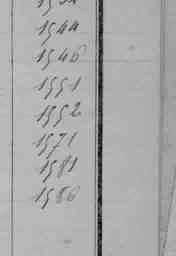 1544
1546
1551
1552
1571
1581
1586